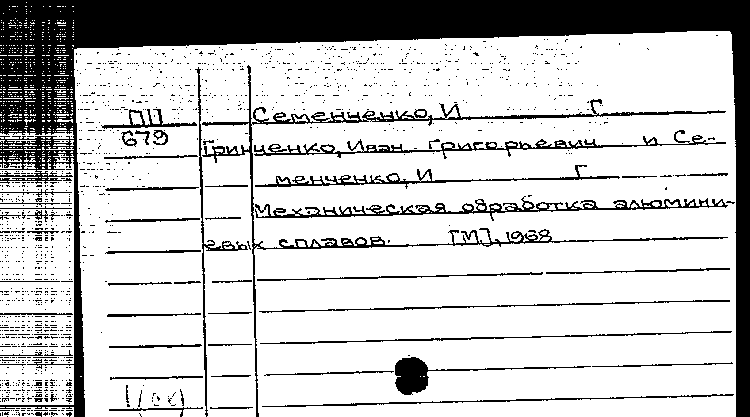 ПП Семенченко, И Г
679
Гринченко, Иван Григорьевич и Се-
менченко, И Г
Механическая обработка алюмини-
евых сплавов. [М], 1968